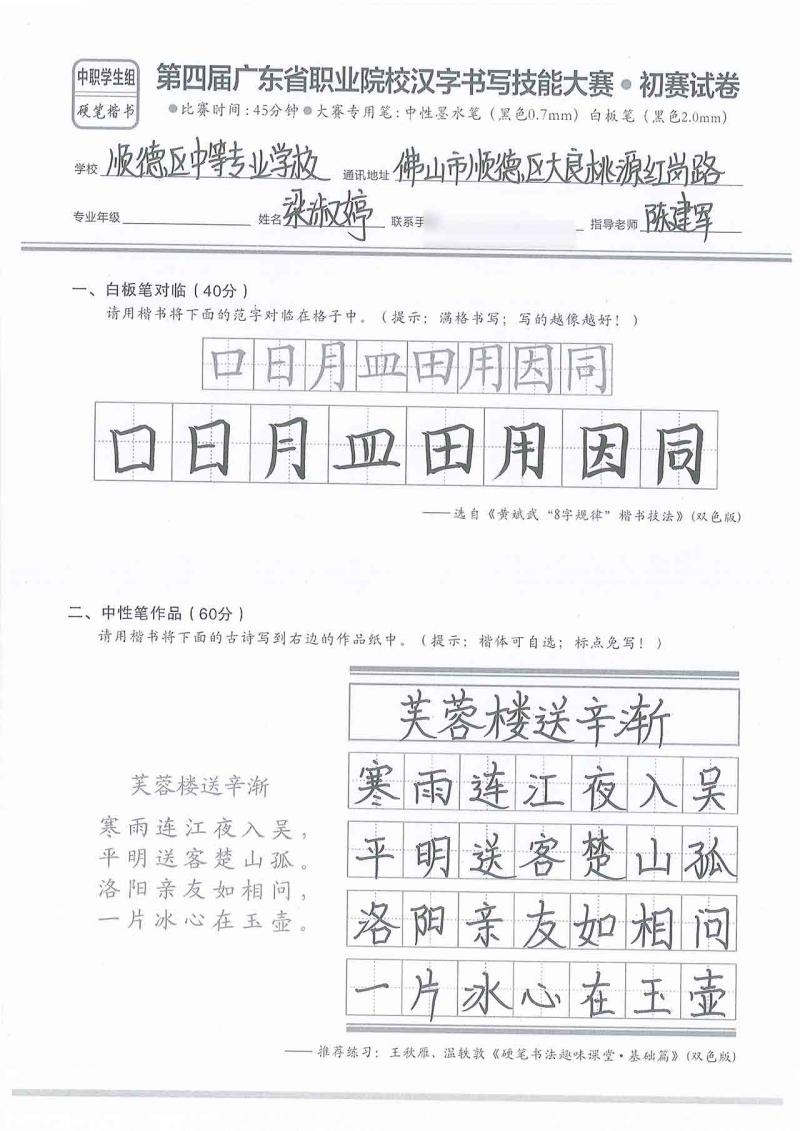 中职学生组
硬笔楷书
第四届广东省职业院校汉字书写技能大赛•初赛试卷
●比赛时间:45分钟●大赛专用笔:中性墨水笔(黑色0.7mm)白板笔(黑色2.0mm)
学校 顺德区中等专业学校 通讯地址 佛山市顺德区大良桃源红岗路
专业年级 姓名 梁淑婷 联系手 指导老师 陈建军
一、白板笔对临(40分)
请用楷书将下面的范字对临在格子中。(提示:满格书写;写的越像越好!)
口日月皿田用因同
口日月皿田用因同
——选自《黄斌武“8字规律”楷书技法》(双色版)
二、中性笔作品(60分)
请用楷书将下面的古诗写到右边的作品纸中。(提示:楷体可自选;标点免写!)
芙蓉楼送辛渐
寒雨连江夜入吴,
平明送客楚山孤。
洛阳亲友如相问,
一片冰心在玉壶。
芙蓉楼送辛渐
寒雨连江夜入吴
平明送客楚山孤
洛阳亲友如相问
一片冰心在玉壶
——推荐练习:王秋雁、温轶敦《硬笔书法趣味课堂·基础篇》(双色版)